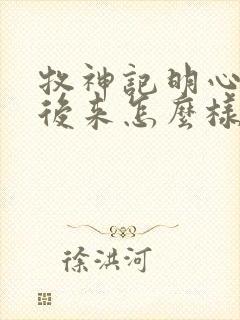 牧神記明心
後来怎麼樣
徐洪河